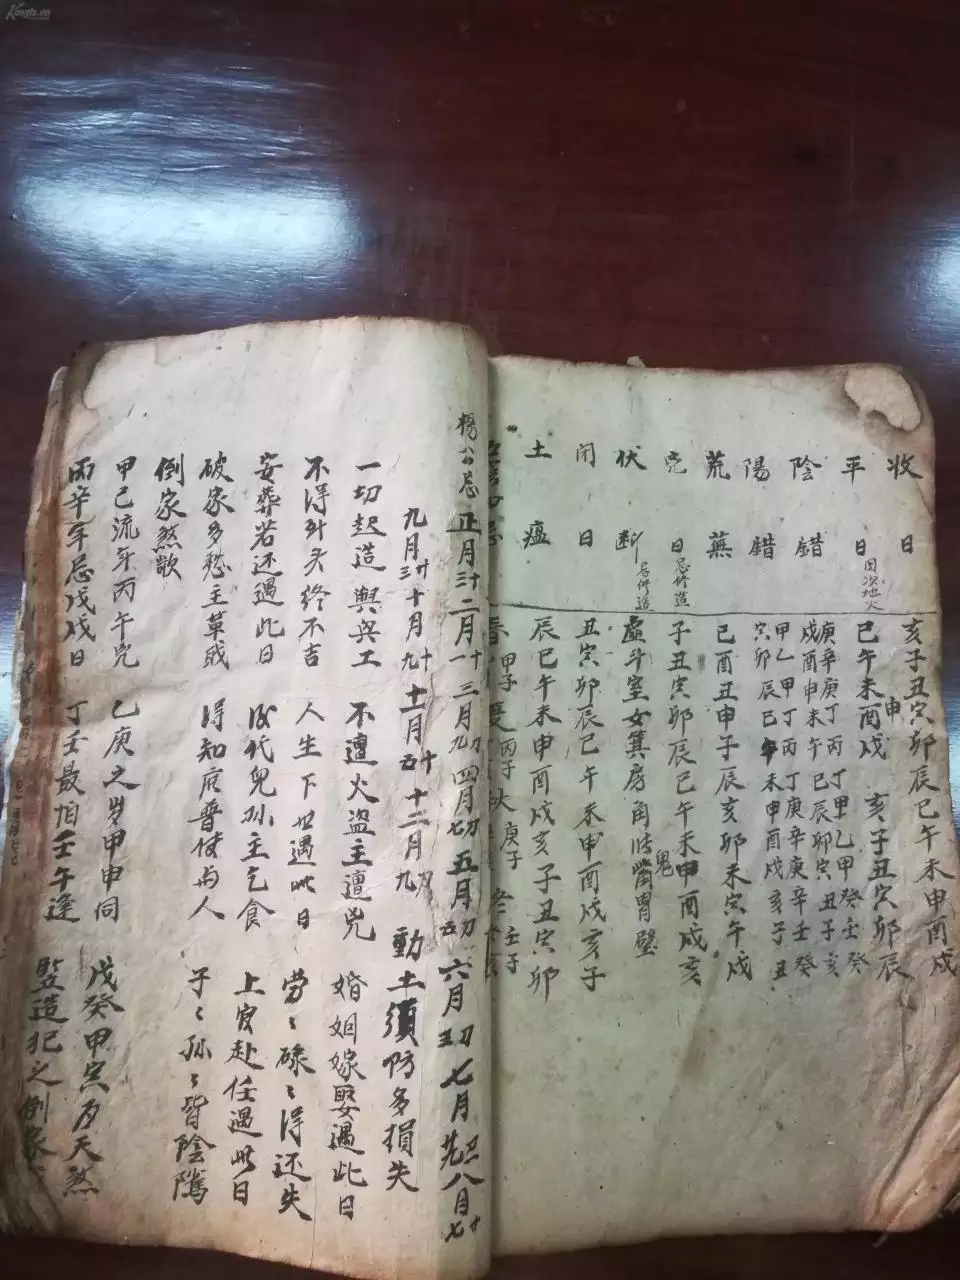 Kongfz.cn
收日 亥子丑寅卯辰巳午未申酉戌
平日 巳午未申酉戌亥子丑寅卯辰
陰錯 庚辛庚丁丙丁甲乙甲癸壬癸
戌酉申未午巳辰卯寅丑子亥
陽錯 甲乙甲丁丙丁庚辛庚辛壬癸
寅卯辰巳午未申酉戌亥子丑
荒蕪 巳酉丑申子辰亥卯未寅午戌
日忌修造 子丑寅卯辰巳午未申酉戌亥
伏断忌修造 虛斗室女箕房角 鬼觜胃壁
闭日 丑寅卯辰巳午未申酉戌亥子
土瘟 辰巳午未申酉戌亥子丑寅卯
春甲子夏丙子秋庚子冬壬子
楊公忌正月十三二月十一三月初九四月初七五月初五六月初三七月初一廿九八月廿七
九月廿三十月十九十一月十五十二月初九動土須防多損失
一切起造與兴工 不遭火盗主遭兇 婚姻嫁娶遇此日
不得到头终不吉 人生下世遇此日 劳〻碌〻得还失
安葬若还遇此日 後代兒孙主乞食 上官赴任遇此日
破家多愁主草賊 得知 子〻孙〻皆陰隲
倒家煞歌
甲己流年丙午 乙庚之岁甲申同 戊癸甲寅为天煞
丙辛年忌戊戌日 丁壬最怕壬午逢 竪造犯之倒家